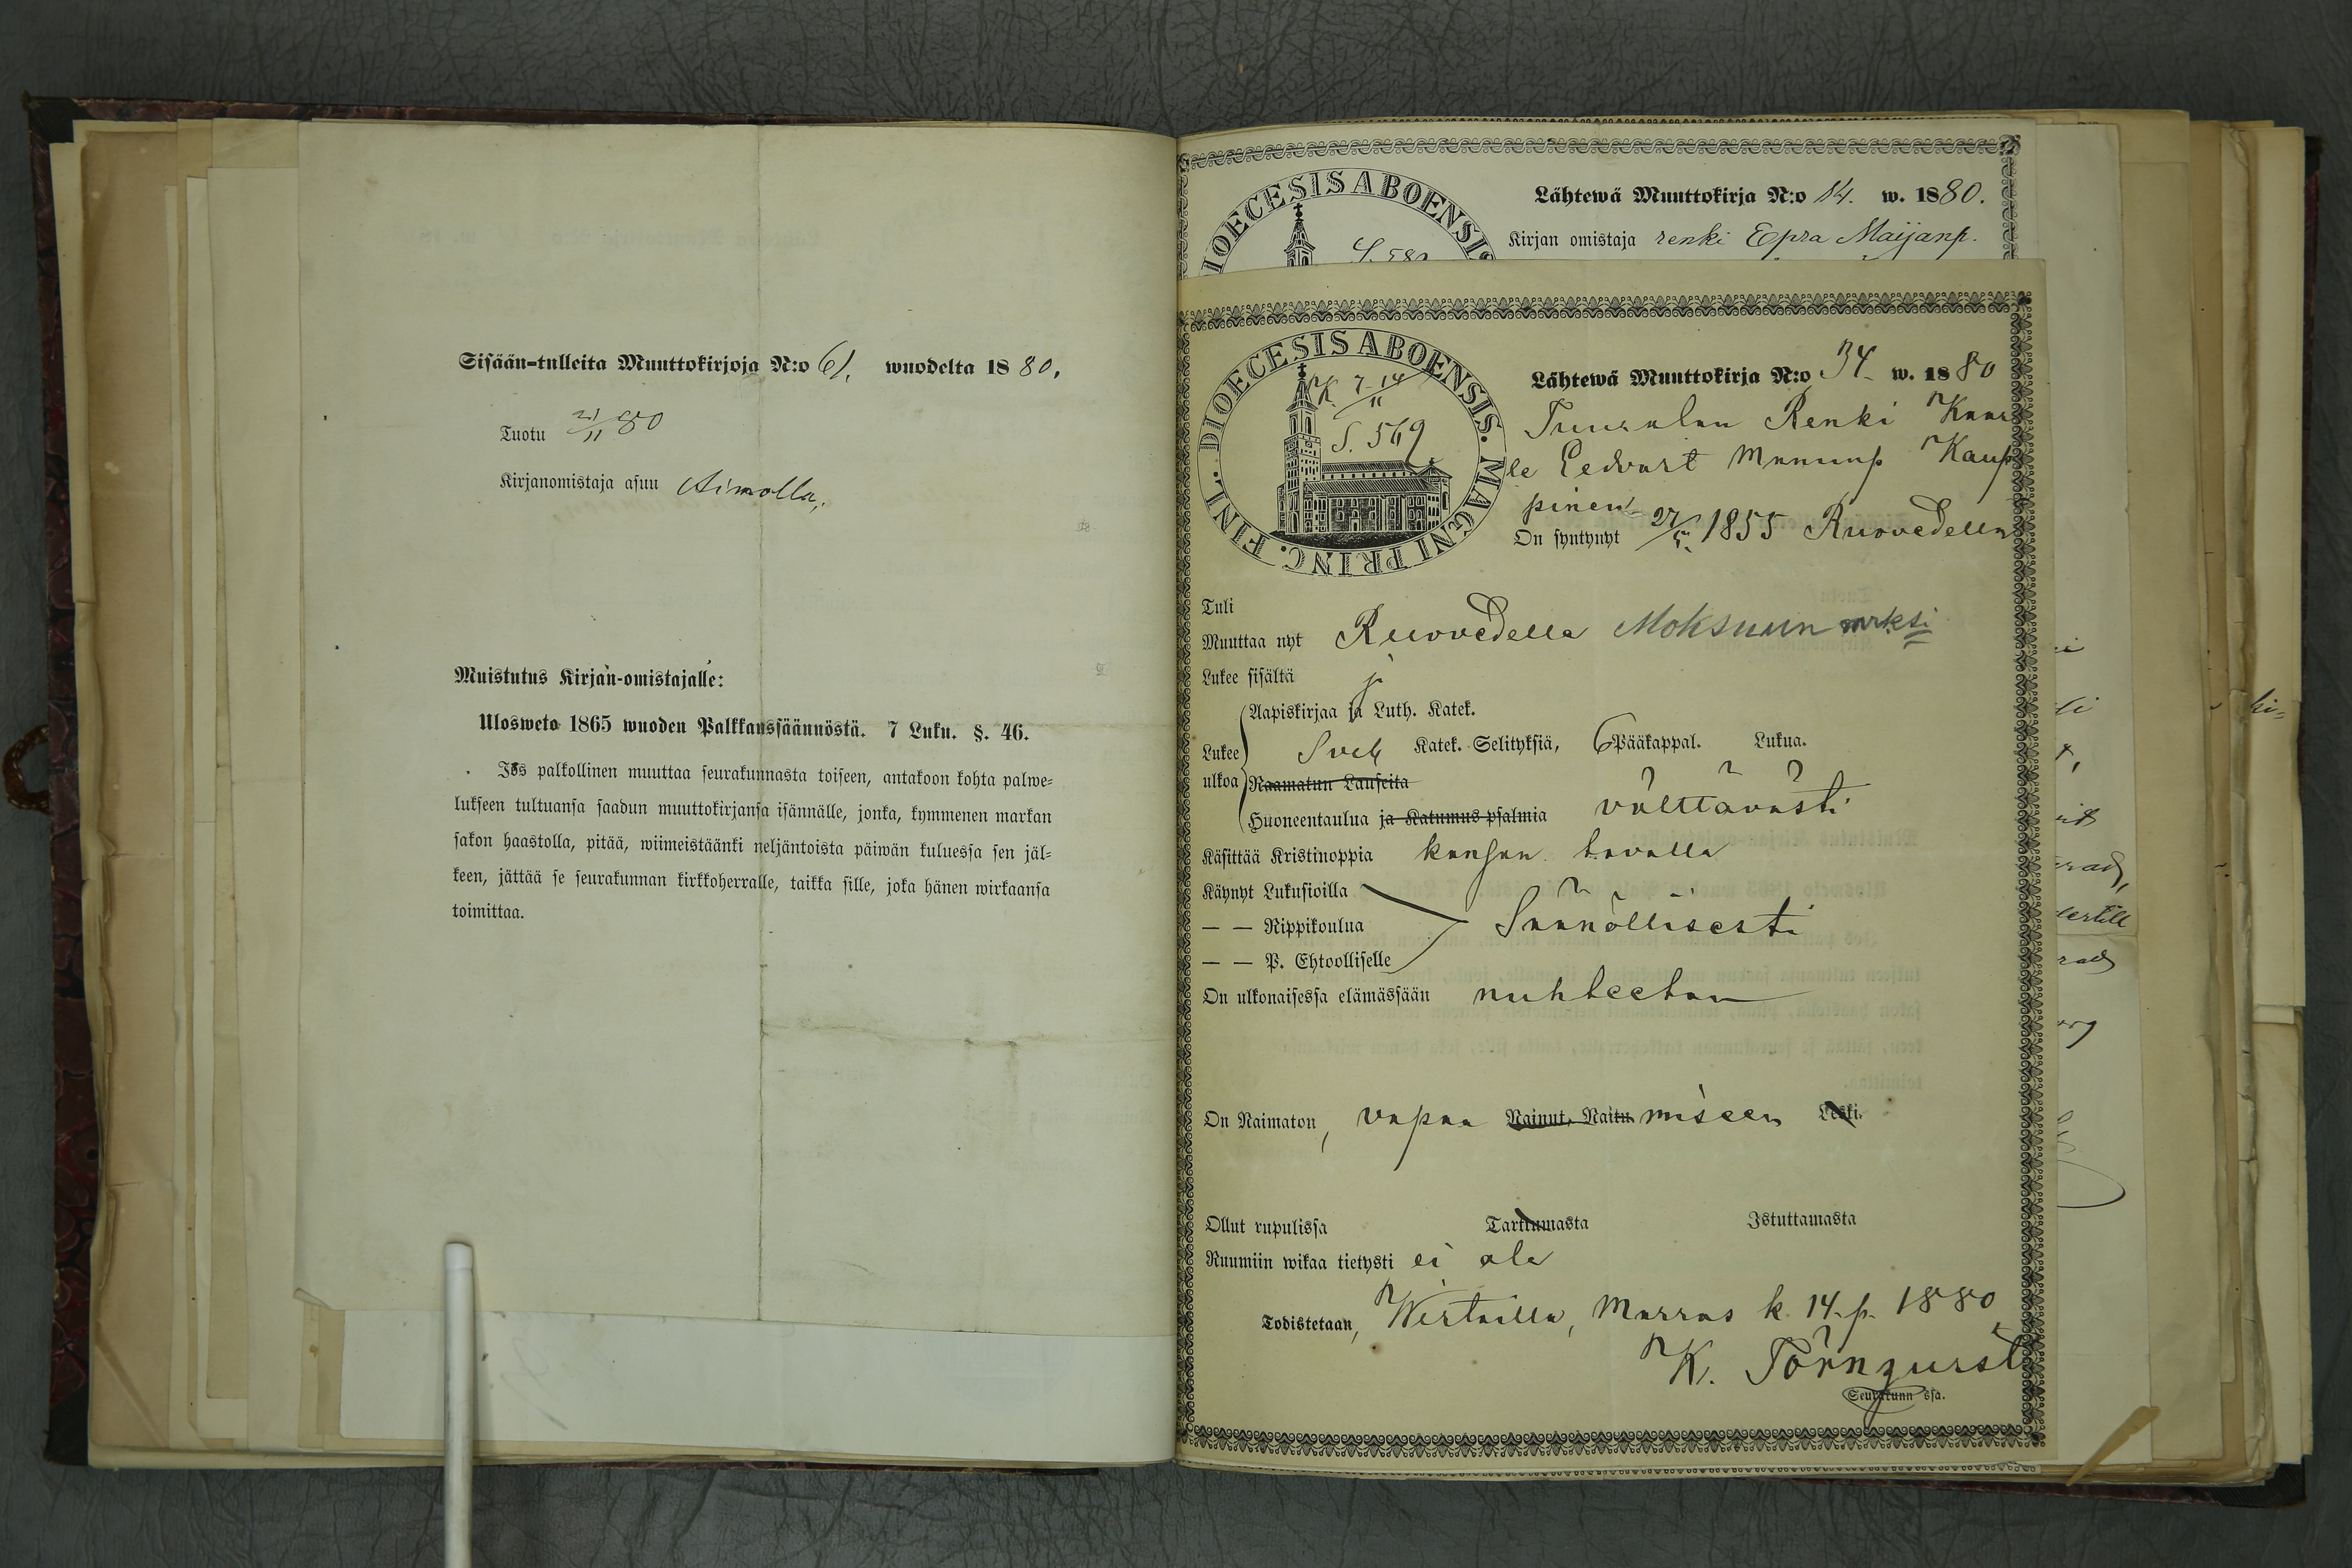 Sisään-tulleita Muuttokirjoja N:o 61. wuodelta 1880.
Tuotu 21/11 80
Kirjanomistaja asuu Aimolla,
Muistutus Kirjan-omistajalle:
Ulosweto 1865 wuoden Palkkaussäännöstä. 7 Luku. §. 46.
Jos palkollinen muuttaa seurakunnasta toiseen, antakoon kohta palwe-
lukseen tultuansa saadun muuttokirjansa isännälle, jonka, kymmenen markan
sakon haastolla, pitää, wiimeistäänki neljäntoista päiwän kuluessa sen jäl-
keen, jättää se seurakunnan kirkkoherralle, taikka sille, joka hänen wirkaansa
toimittaa.
DIOECESIS ABOENSIS
Lähtewä Muuttokirja N:o 14. w. 1880.
Kirjan omistaja renki Epra Maijanp.
S. 580
DIOECESIS ABOENSIS. MAGNI PRINC. FINL.
K. 7-14/11
S. 569
Lähtewä Muuttokirja N:o 34. w. 1880
Renki Kaar
le Eedvart Mananp Kaup
pinen
On syntynyt 27/5. 1855 Ruovedellä
Tuli
Muuttaa nyt Ruovedelle Moksuun
Lukee sisältä j
Lukee ulkoa
Aapiskirjaa ja Luth. Katek.
Sveb Katek. Selityksiä, 6 Pääkappal. Lukua.
Raamatun Lauseita
Huoneentaulua ja Katumus psalmia välttävästi
Käsittää Kristinoppia kansan tavalla
Käynyt Lukusioilla
— — Rippikoulua Säänöllisesti
— — P. Ehtoolliselle
On ulkonaisessa elämässään nuhteeton
On Naimaton, vapaa Nainut, Naitu miseen Leski.
Ollut rupulissa Tarttumasta Istuttamasta
Ruumiin wikaa tietysti ei ole
Todistetaan, Wirtailla, Marras k. 14. p. 1880
K. Törnqvist
Seurakunn ssa.